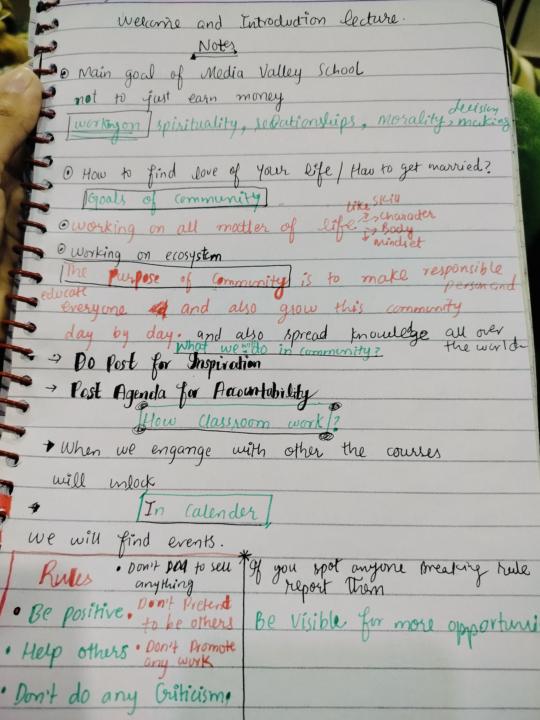 Welcome and Introduction lecture.
Notes
Main goal of Media Valley School
not to just earn money
working on spirituality, relationships, morality, decision making
How to find love of your life / How to get married?
Goals of community
working on all matter of life like → Skill
→ Character
→ Body
Mindset
Working on ecosystem
The purpose of community is to make responsible person and
educate everyone and also grow this community
day by day. and also spread knowledge all over the world
What we will do in community?
→ Do Post for Inspiration
→ Post Agenda for Accountability
How Classroom work?
→ When we engange with other the courses
will unlock
→ In Calender
We will find events.
Rules
• Don't DM to sell anything
• Be positive
• Don't Pretend to be others
• Help others
• Don't Promote any work
• Don't do any Criticism
* If you spot anyone breaking rule
report them
Be Visible for more opportuni